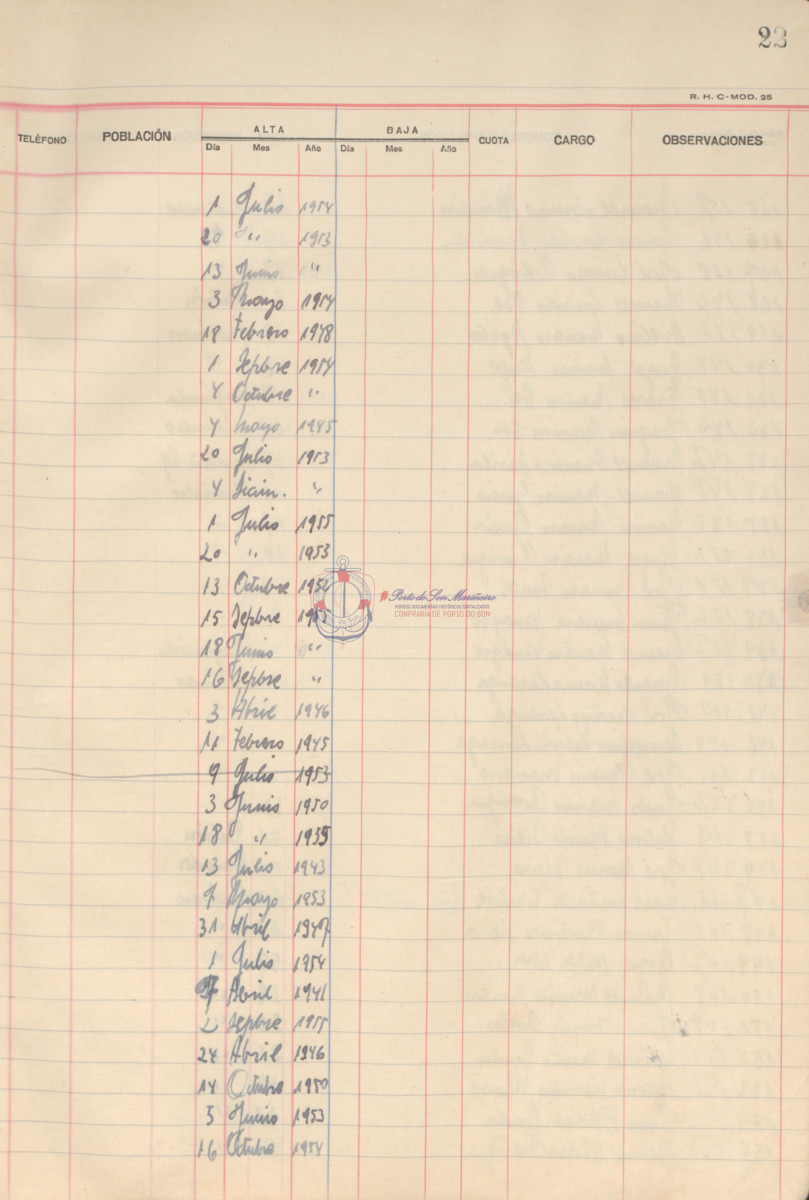 23
R. H. C-MOD. 25
TELÉFONO POBLACIÓN ALTA BAJA CUOTA CARGO OBSERVACIONES
Día Mes Año Día Mes Año
1 Julio 1954
20 " 1953
13 Junio "
3 Mayo 1954
18 Febrero 1948
1 Sepbre 1954
4 Octubre "
4 mayo 1945
20 Julio 1953
4 "
1 Julio 1955
20 " 1953
13 Octubre
15 Sepbre
18 Junio "
16 Sepbre "
3 Abril 1946
11 Febrero 1945
9 Julio 1953
3 Junio 1950
18 " 1955
13 Julio 1943
7 Mayo 1953
31 Abril 1947
1 Julio 1954
Abril 1941
2 Sepbre 1955
24 Abril 1946
14 Octubre 1950
5 Junio 1953
16 Octubre 1954
#Porto do Son Mariñeiro
FONDOS DOCUMENTAIS HISTÓRICOS DIXITALIZADOS
CONFRARÍA DE PORTO DO SON